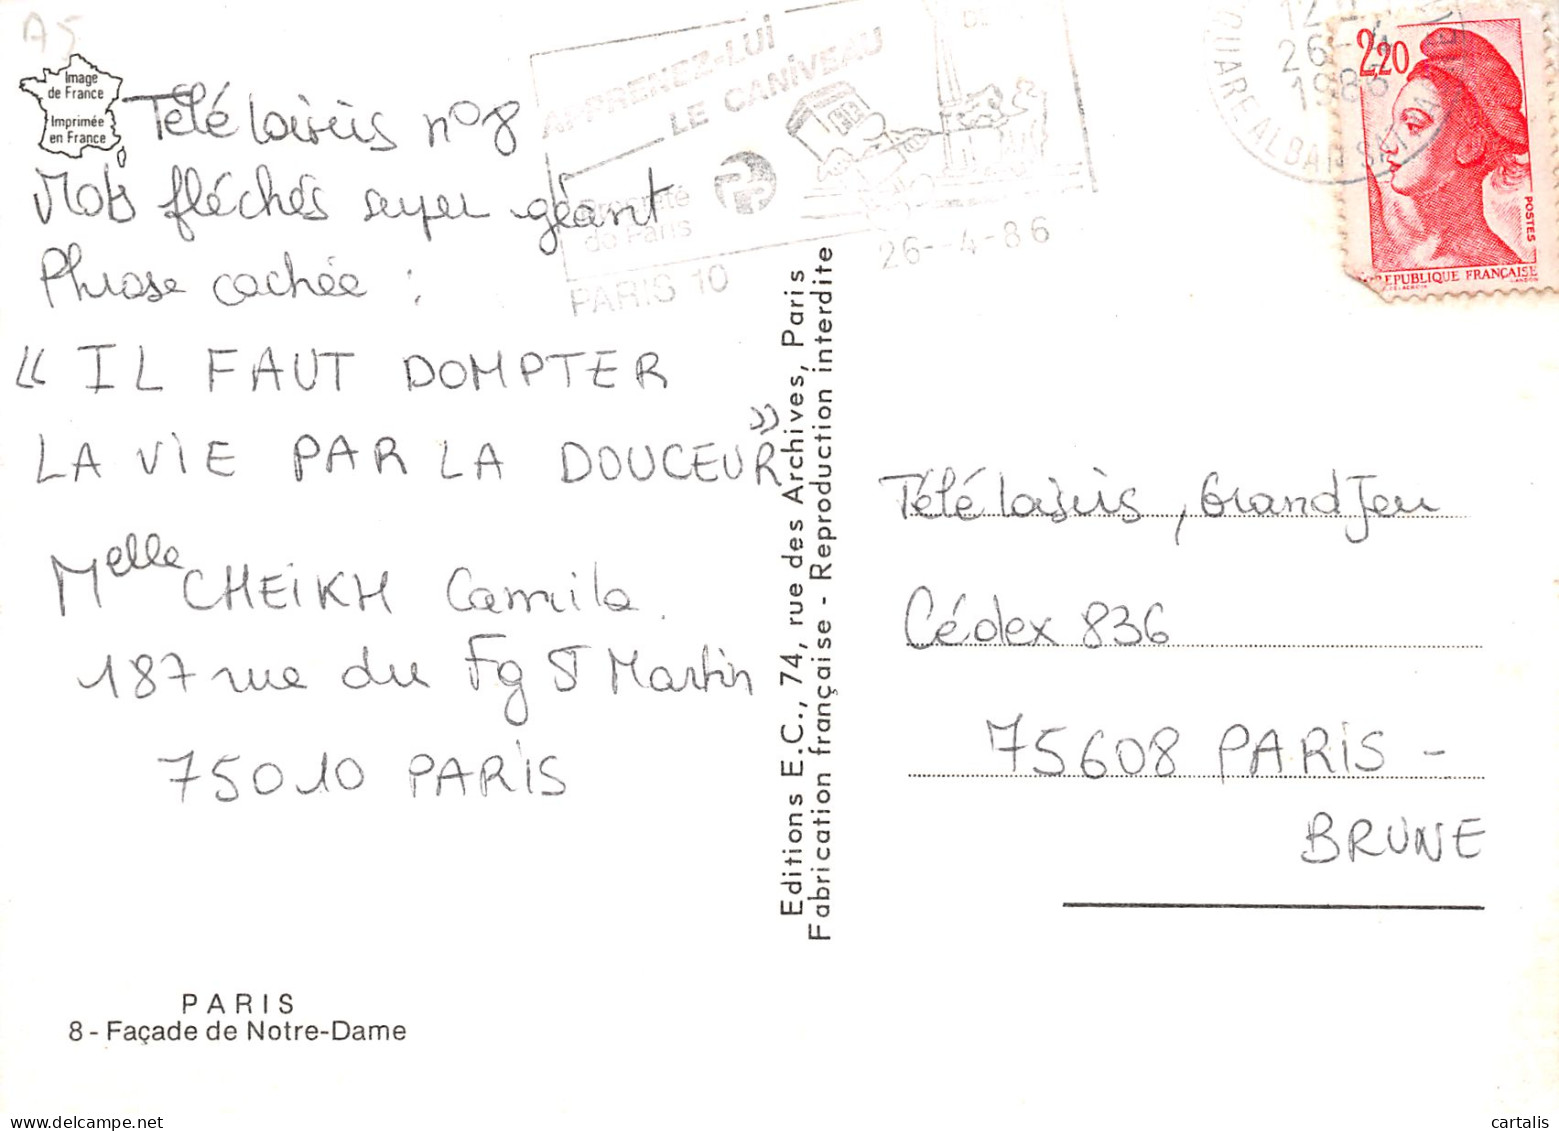 A5
Image
de France
Imprimée
en France
Télé loisirs n°8
Mots fléchés super géant
Phrase cachée :
" IL FAUT DOMPTER
LA VIE PAR LA DOUCEUR "
Melle CHEIKH Camila
187 rue du Fg St Martin
75010 PARIS
PARIS
8 - Façade de Notre-Dame
APPRENEZ-LUI
LE CANIVEAU
Propreté
de Paris
PARIS 10
26 - 4 - 86
Editions E.C., 74, rue des Archives, Paris
Fabrication française - Reproduction interdite
26 - 4
2,20
POSTES
REPUBLIQUE FRANÇAISE
Télé loisirs, Grand Jeu
Cédex 836
75608 PARIS -
BRUNE
cartalis